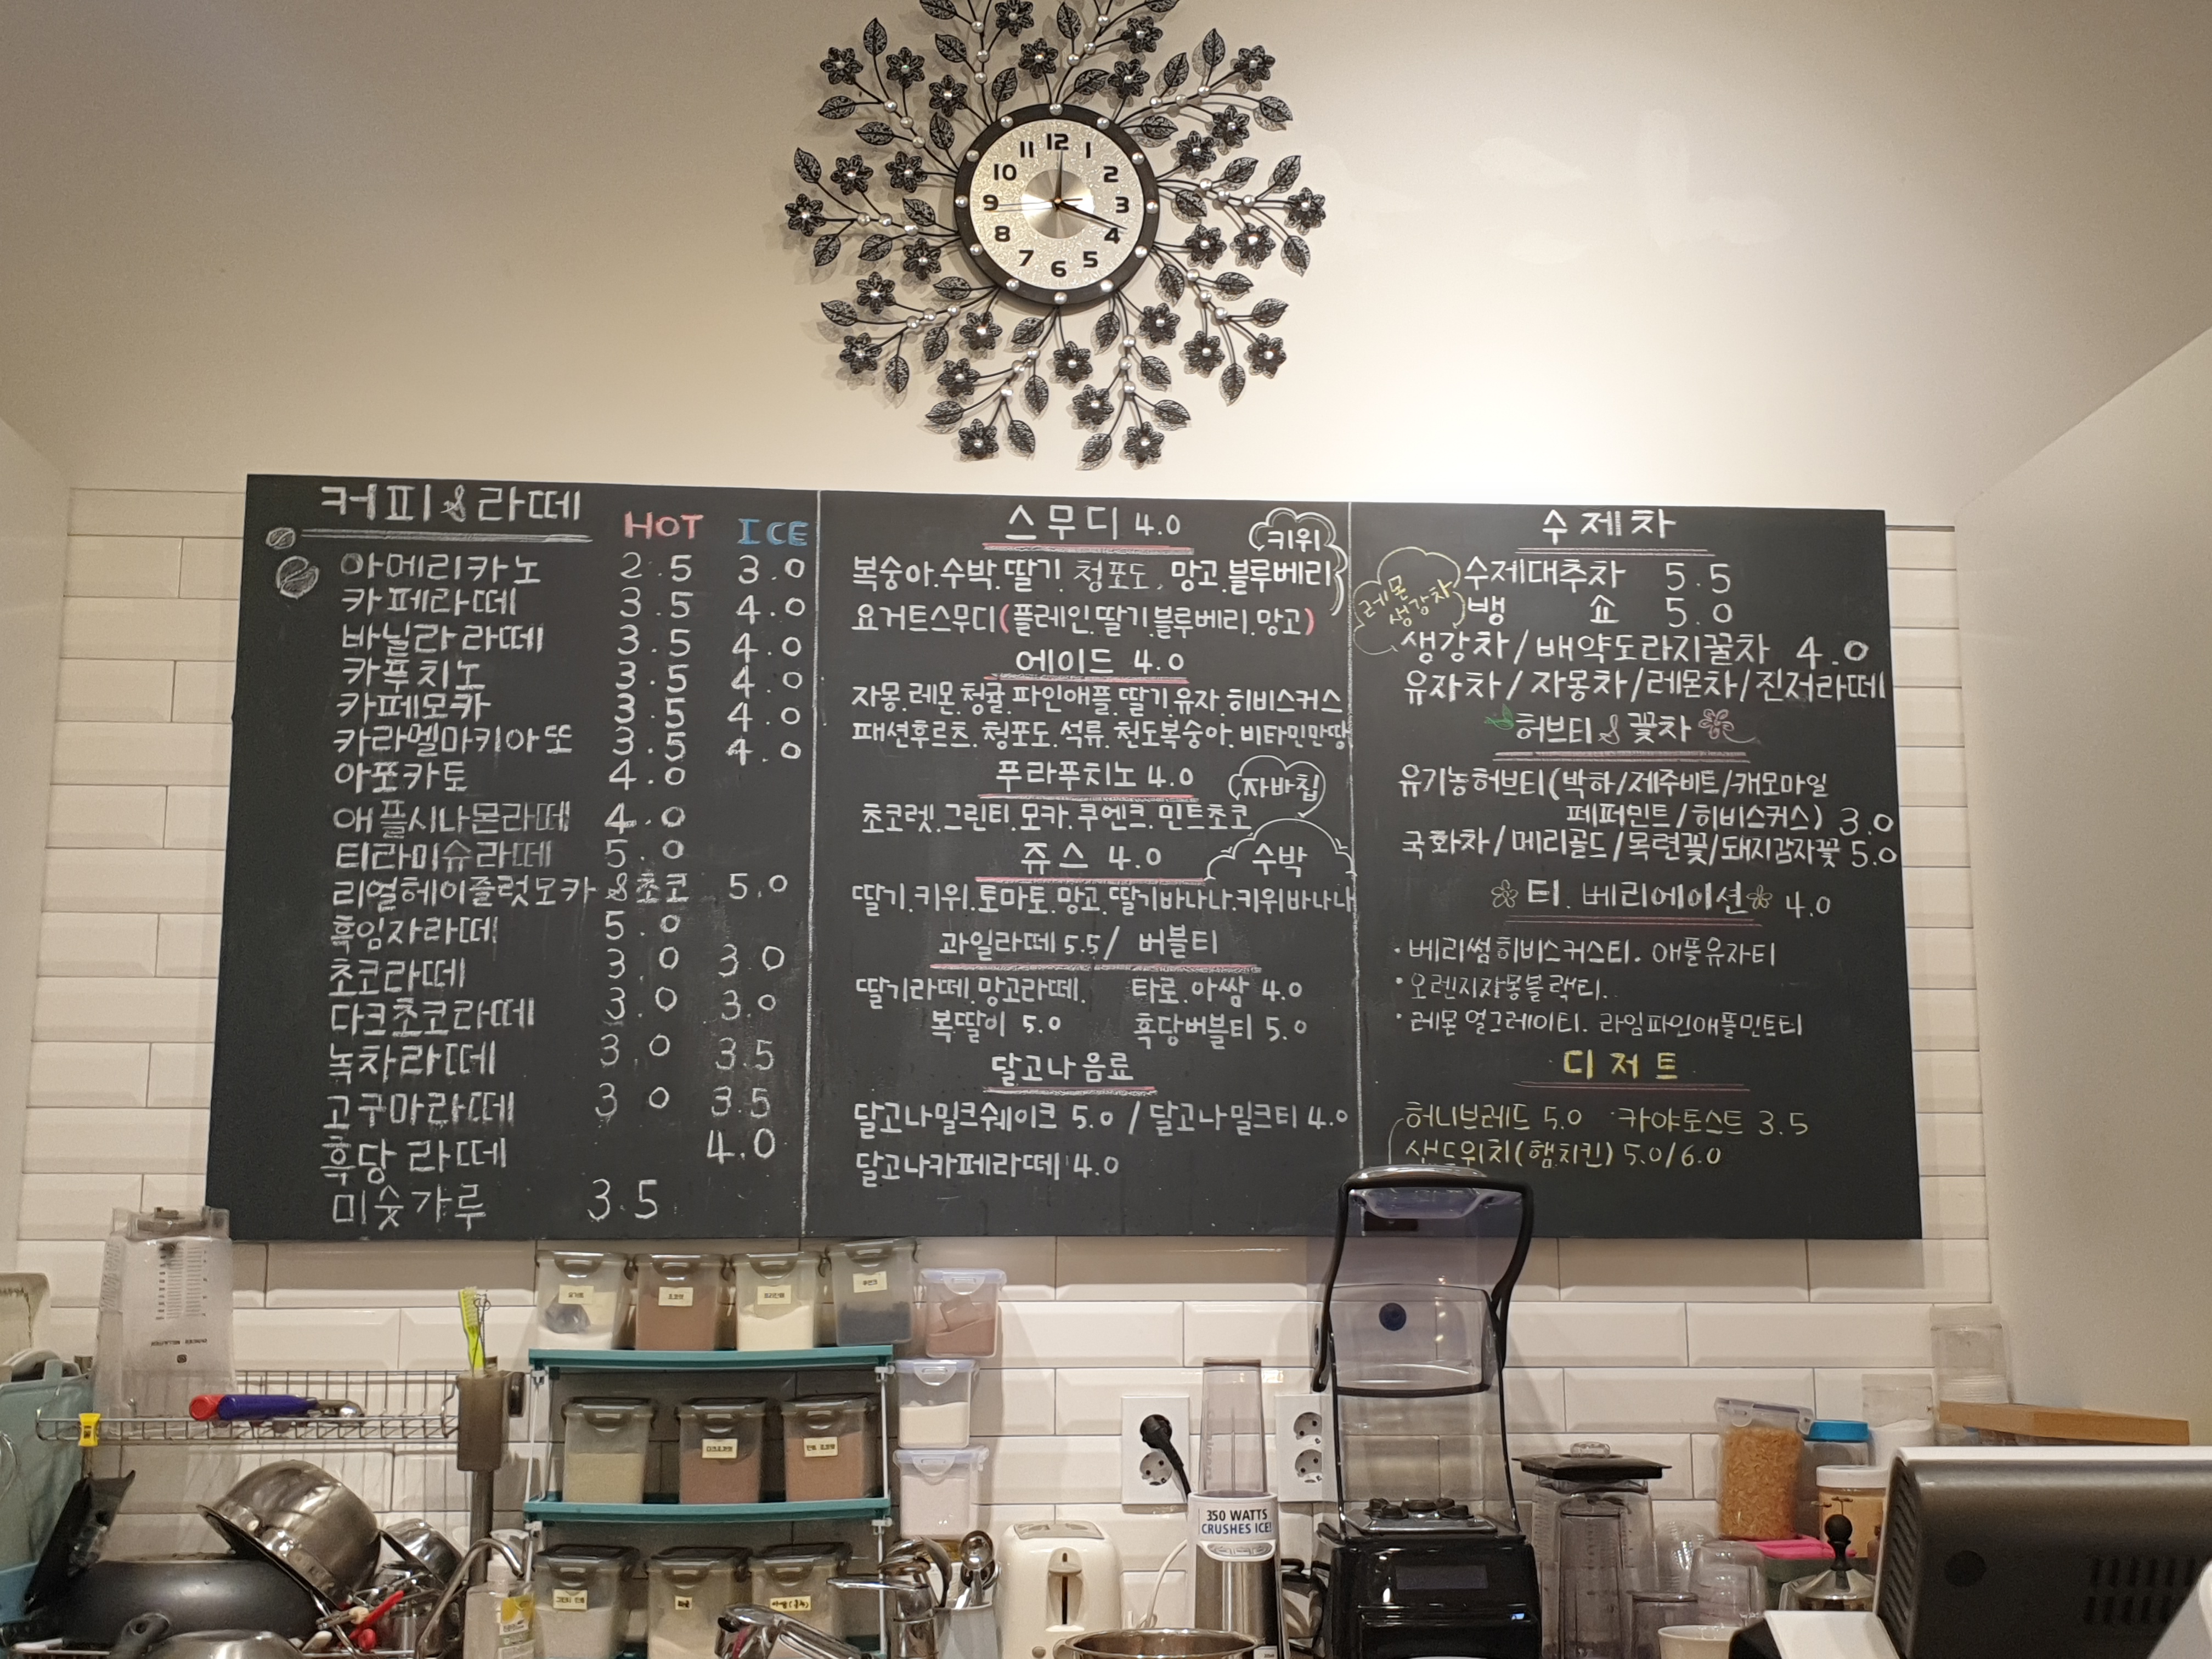 12
1
2
3
4
5
6
7
8
9
10
11
커피&라떼
HOT ICE
아메리카노 2.5 3.0
카페라떼 3.5 4.0
바닐라라떼 3.5 4.0
카푸치노 3.5 4.0
카페모카 3.5 4.0
카라멜마키아또 3.5 4.0
아포카토 4.0
애플시나몬라떼 4.0
티라미슈라떼 5.0
리얼헤이즐럿모카&초코 5.0
흑임자라떼 5.0
초코라떼 3.0 3.0
다크초코라떼 3.0 3.0
녹차라떼 3.0 3.5
고구마라떼 3.0 3.5
흑당라떼 4.0
미숫가루 3.5
스무디 4.0
키위
복숭아.수박.딸기.청포도.망고.블루베리
요거트스무디(플레인.딸기.블루베리.망고)
에이드 4.0
자몽.레몬.청귤.파인애플.딸기.유자.히비스커스
패션후르츠.청포도.석류.천도복숭아.비타민만땅
푸라푸치노 4.0
자바칩
초코렛.그린티.모카.쿠엔크.민트초코
쥬스 4.0
수박
딸기.키위.토마토.망고.딸기바나나.키위바나나
과일라떼 5.5/ 버블티
딸기라떼.망고라떼. 타로.아쌈 4.0
복딸이 5.0 흑당버블티 5.0
달고나음료
달고나밀크쉐이크 5.0 / 달고나밀크티 4.0
달고나카페라떼 4.0
수제차
수제대추차 5.5
레몬
생강차
뱅 쇼 5.0
생강차/배약도라지꿀차 4.0
유자차/자몽차/레몬차/진저라떼
허브티&꽃차
유기농허브티(박하/제주비트/캐모마일
페퍼민트/히비스커스) 3.0
국화차/메리골드/목련꽃/돼지감자꽃 5.0
티.베리에이션 4.0
·베리썸히비스커스티. 애플유자티
·오렌지자몽블랙티.
·레몬얼그레이티. 라임파인애플민트티
디저트
허니브레드 5.0 ·카야토스트 3.5
샌드위치(햄치킨) 5.0/6.0
350 WATTS
CRUSHES ICE!